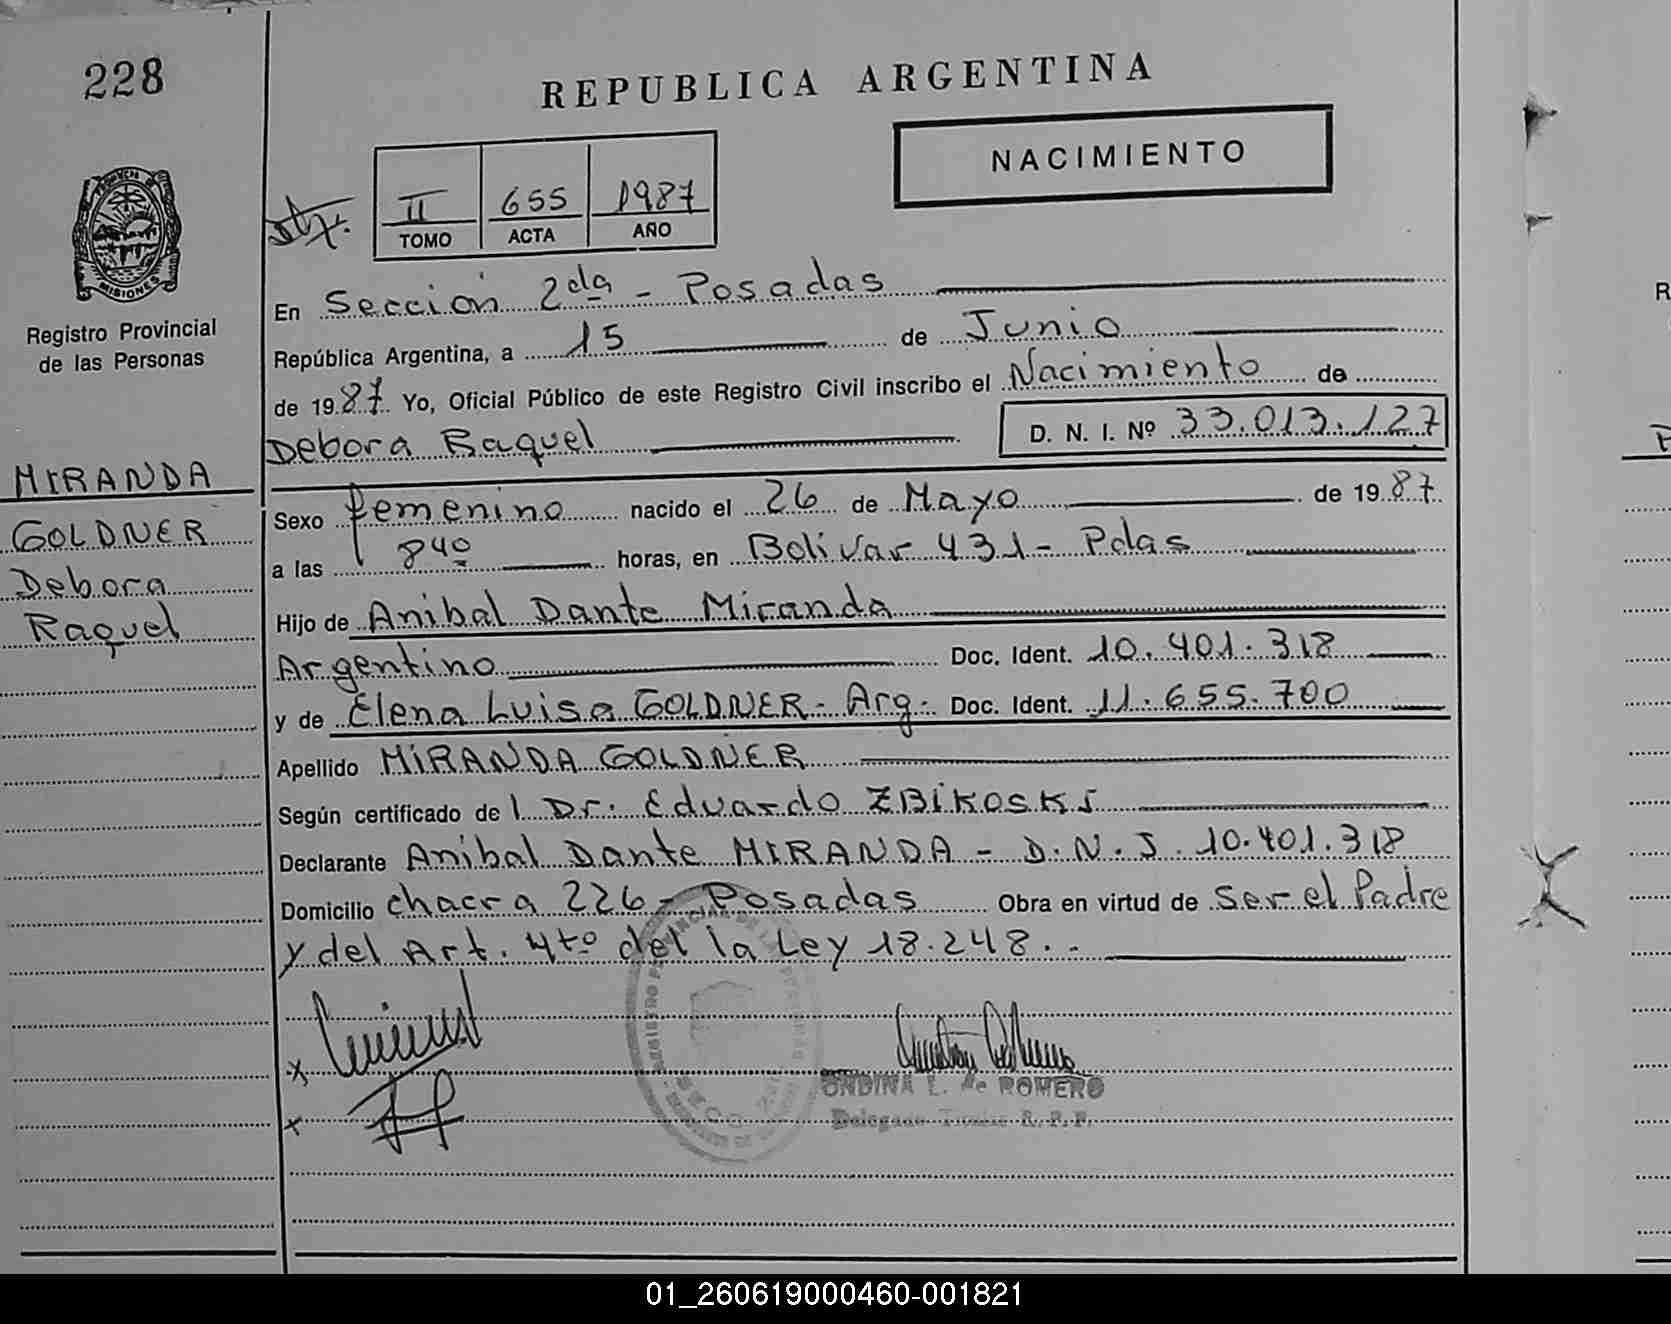 228
REPUBLICA ARGENTINA
NACIMIENTO
II 655 1987
TOMO ACTA AÑO
PROVINCIA DE
MISIONES
Registro Provincial
de las Personas
MIRANDA
GOLDNER
Debora
Raquel
En Sección 2da - Posadas
República Argentina, a 15 de Junio
de 1987 Yo, Oficial Público de este Registro Civil inscribo el Nacimiento de
Debora Raquel D. N. I. Nº 33.013.127
Sexo femenino nacido el 26 de Mayo de 1987
a las 840 horas, en Bolivar 431 - Pdas
Hijo de Anibal Dante Miranda
Argentino Doc. Ident. 10.401.318
y de Elena Luisa GOLDNER - Arg. Doc. Ident. 11.655.700
Apellido MIRANDA GOLDNER
Según certificado de l Dr. Eduardo ZBIKOSKI
Declarante Anibal Dante MIRANDA - D.N.I. 10.401.318
Domicilio chacra 226 - Posadas Obra en virtud de Ser el Padre
y del Art. 4to del la Ley 18.248..
x
ONDINA L. de ROMERO
x
Delegado Titular R. P. P.
01_260619000460-001821